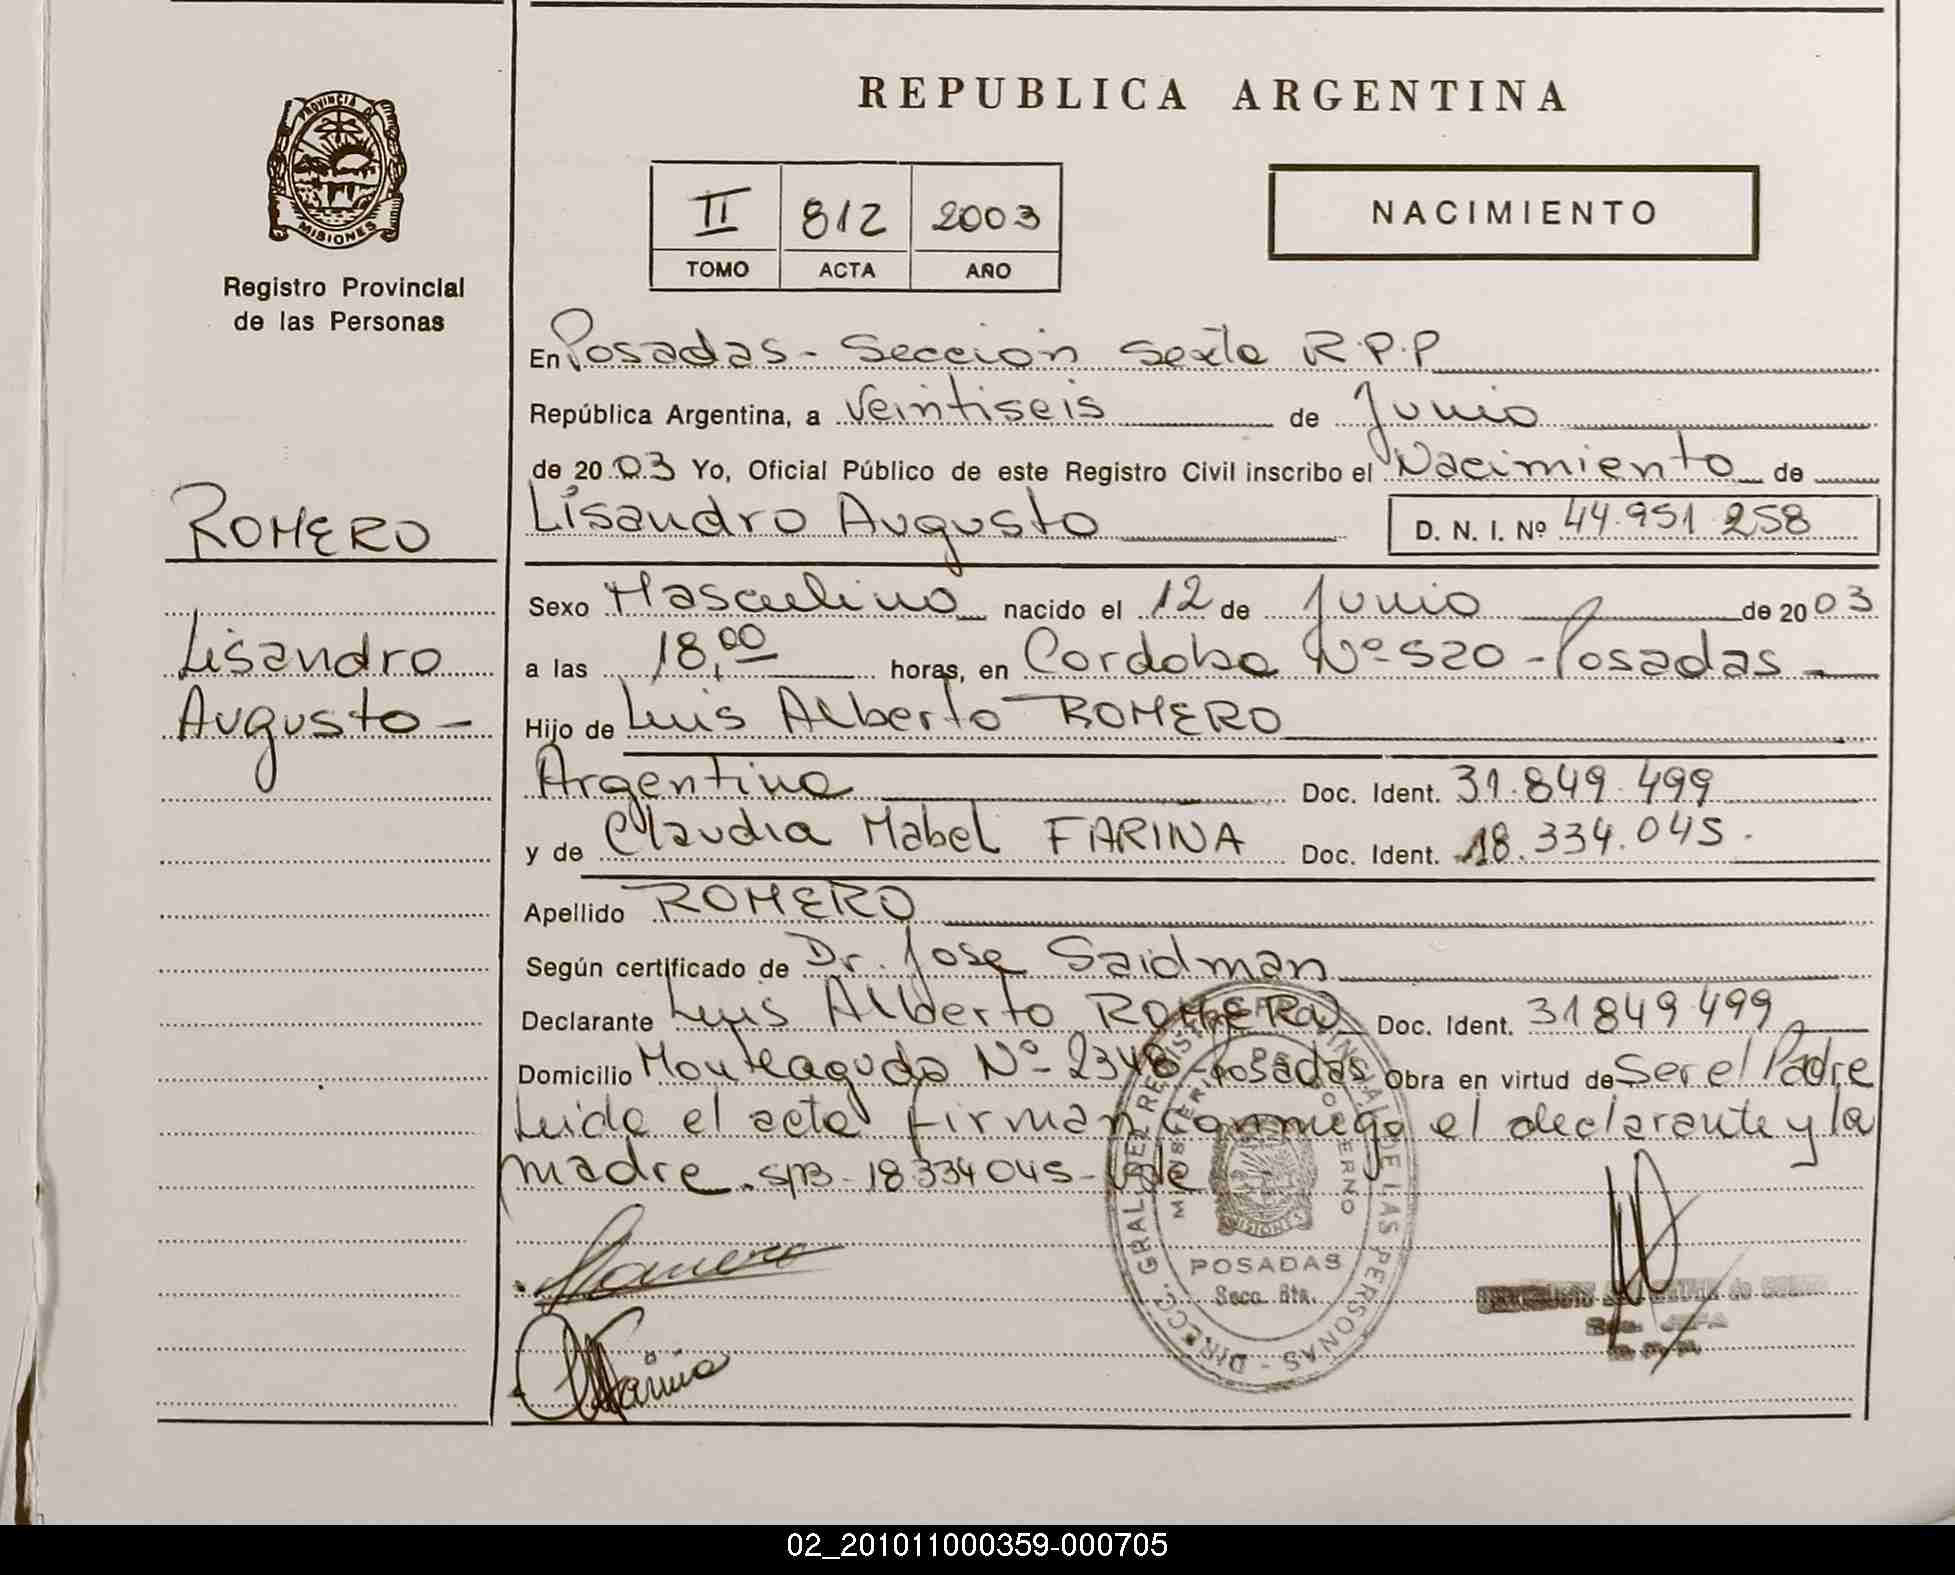 REPUBLICA ARGENTINA
PROVINCIA DE
MISIONES
Registro Provincial
de las Personas
II 812 2003
TOMO ACTA AÑO
NACIMIENTO
En Posadas - Sección Sexta R.P.P
República Argentina, a veintiseis de Junio
de 2003 Yo, Oficial Público de este Registro Civil inscribo el Nacimiento de
Lisandro Augusto D. N. I. Nº 44.951.258
ROMERO
Lisandro
Augusto -
Sexo Masculino nacido el 12 de Junio de 2003
a las 18,00 horas, en Cordoba Nº 520 - Posadas -
Hijo de Luis Alberto ROMERO
Argentina Doc. Ident. 31.849.499
y de Claudia Mabel FARINA Doc. Ident. 18.334.045.
Apellido ROMERO
Según certificado de Dr. Jose Saidman
Declarante Luis Alberto ROMERO Doc. Ident. 31849499
Domicilio Monteagudo Nº 2348 - Posadas Obra en virtud de Ser el Padre
Leida el acta firman conmigo el declarante y la
madre. S/B - 18.334045 - Vale
Romero
Farina
DIRECC. GRAL. DEL REGISTRO PROVINCIAL DE LAS PERSONAS
MINISTERIO DE GOBIERNO
MISIONES
POSADAS
Secc. 6ta.
02_201011000359-000705